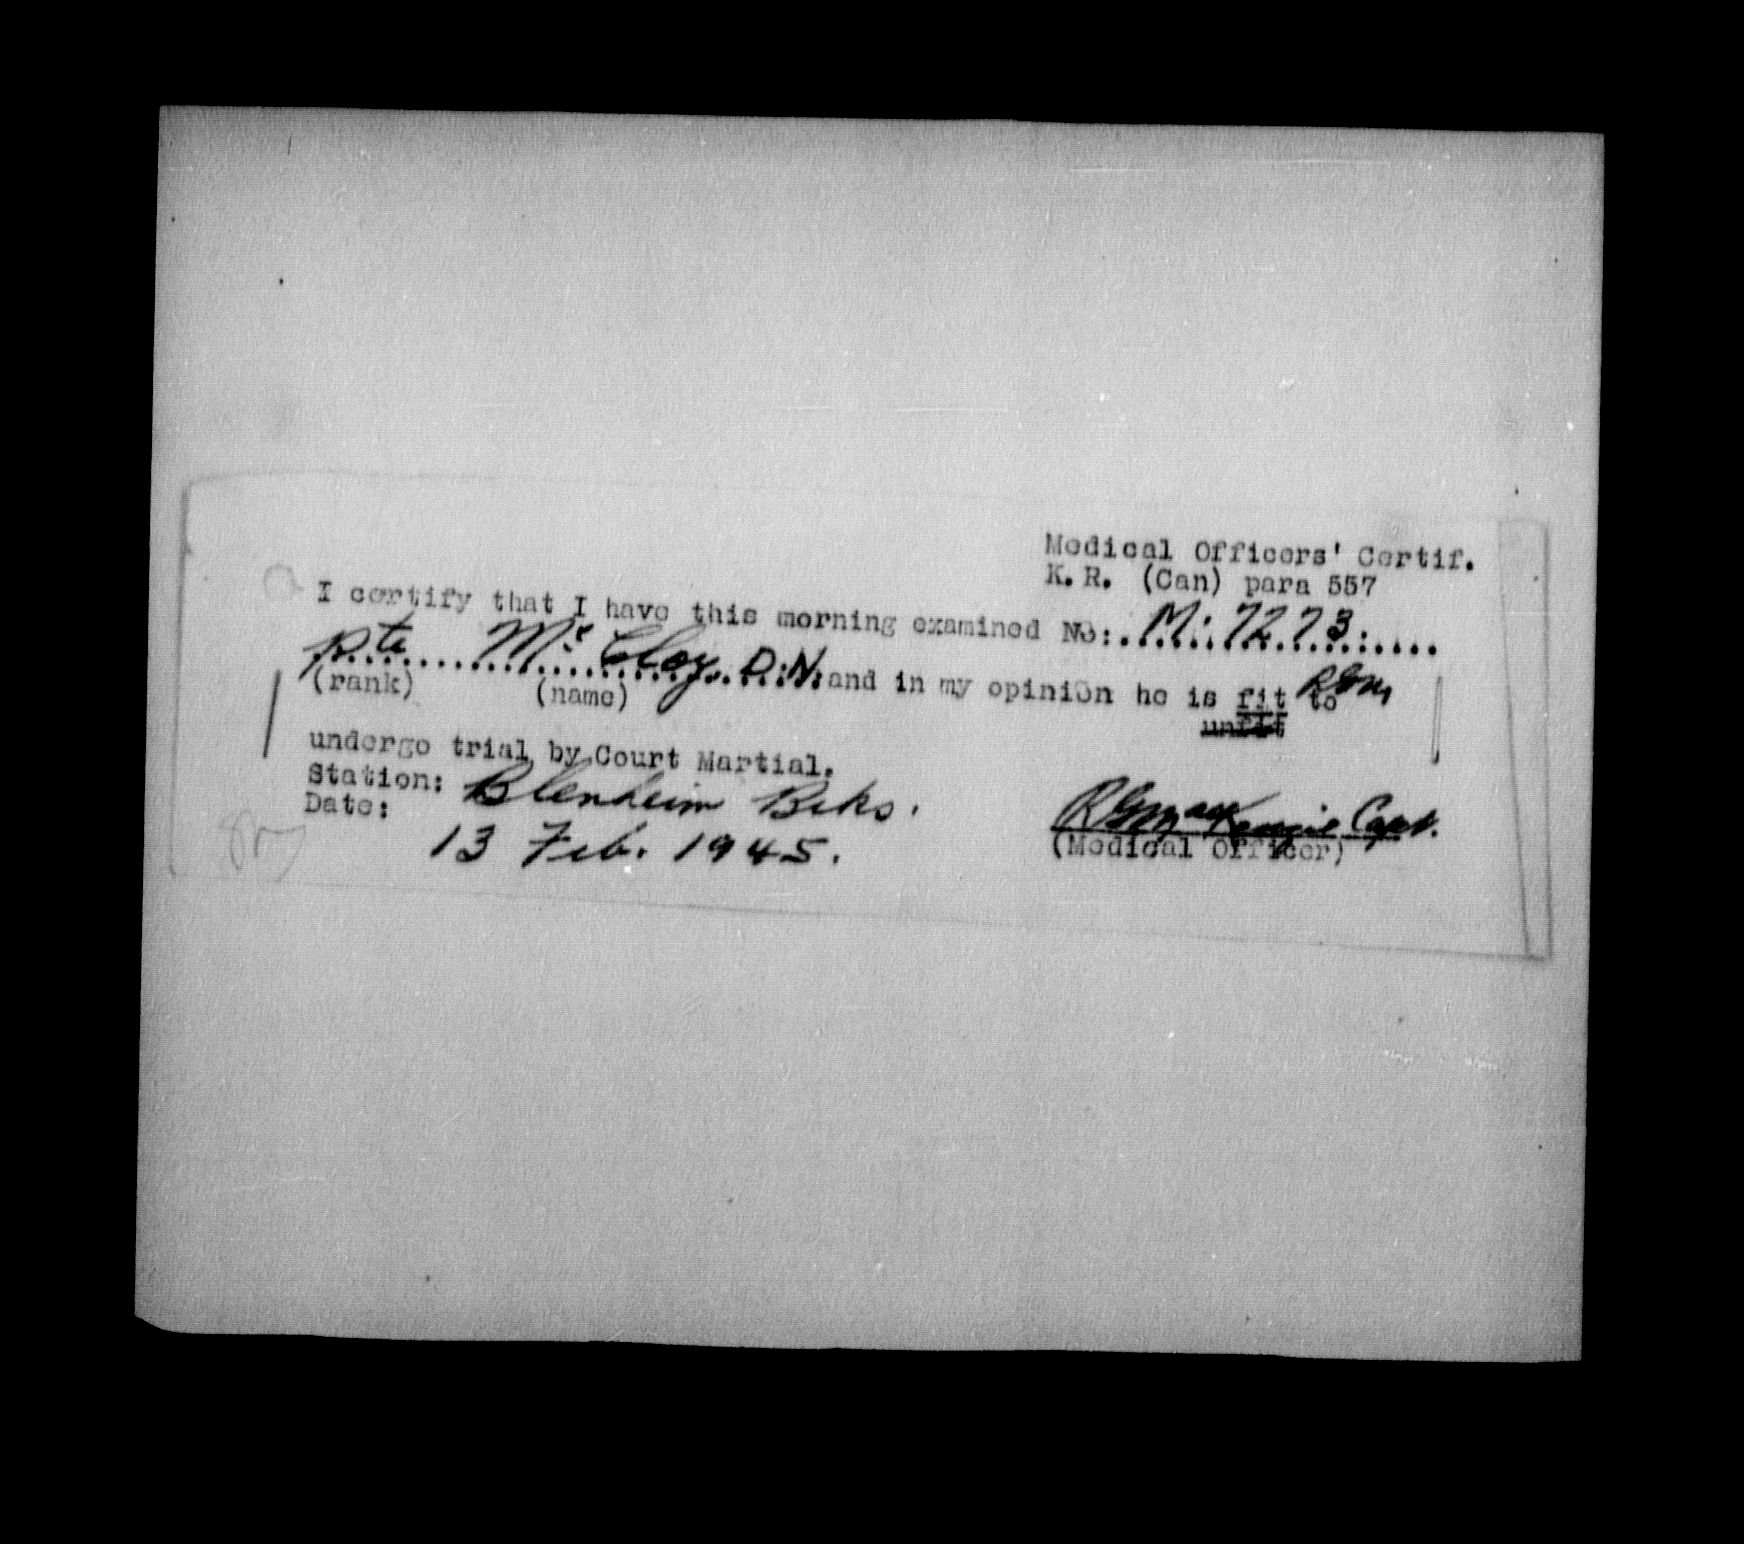 Medical Officers' Certif.
K.R. (Can) para 557
I certify that I have this morning examined No: M. 7273
Pte Mc Cloy, D.N. and in my opinion he is fit to RGM
(rank) (name) unfit
undergo trial by Court Martial.
Station: Blenheim Bcks.
Date: 13 Feb. 1945.
RGMacKenzie Capt.
(Medical Officer)